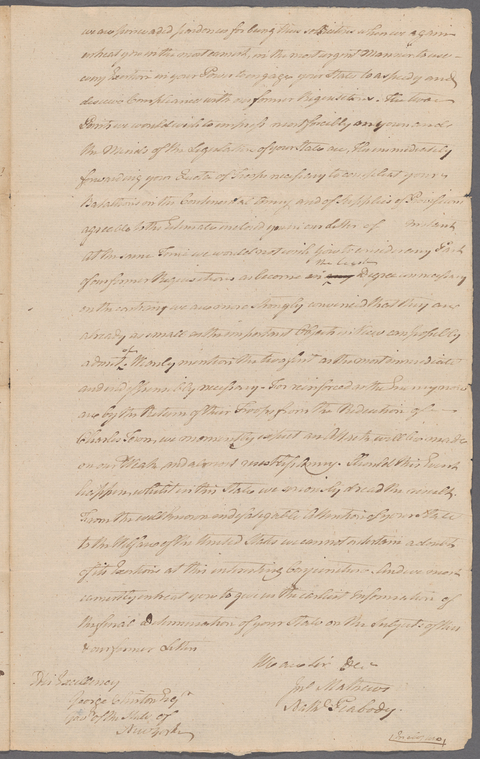 we are persuaded pardon us for being thus solicitous when we again
entreat you in the most earnest, in the most urgent Manner to use
every Exertion in your Power to engage your State to a speedy and
decisive Compliance with our former Requisitions. The two
Points we would wish to impress most forcibly on you and
the Minds of the Legislature of your State are, the immediately
forwarding your Quota of Troops necessary to compleat your
Batalions in the Continental Army, and of Supplies of Provisions
agreeable to the Estimate inclosed you in our Letter of instant
at the same Time we would not wish you to consider any Part
of our former Requisitions as become in any the least Degree unnecessary
on the contrary we are more strongly convinced that they are
already as small as the important Objects in View can possibly
admit of. We only mention the two first as the most immediate
and indispensibly necessary. For reinforced as the Enemy now
are by the Return of their Troops from the Reduction of
Charles Town, we momently expect an Attack will be made
on our Weak and almost Army. Should this Event
happen whilst in this State we seriously dread the result.
From the well known and indefatigable Attention of your State
to the Welfare of the United States we cannot entertain a doubt
of its Exertions at this interesting Conjuncture. And we most
earnestly entreat you to give us the earliest Information of
the final Determination of your State on the Subjects of this
& our former Letter
We are Sir &c
Jno Mathews
Nath. Peabody
His Excellency
George Clinton Esqr
Govr of the State of
New York